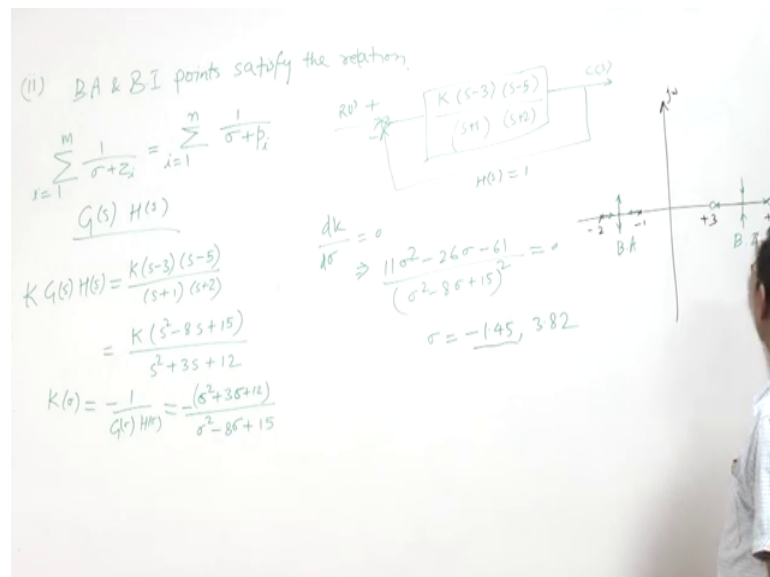 (ii) BA & BI points satisfy the relation.
m∑i=1 1/(σ+zi) = n∑i=1 1/(σ+pi)
G(s) H(s)
K G(s) H(s) = K(s-3)(s-5)/(s+1)(s+2)
= K(s²-8s+15)/s²+3s+12
K(σ) = -1/G(σ)H(σ) = -(σ²+3σ+12)/σ²-8σ+15
+
-
K(s-3)(s-5)/(s+1)(s+2)
C(s)
H(s) = 1
dk/dσ = 0
⇒ 11σ²-26σ-61/(σ²-8σ+15)² = 0
σ = -1.45, 3.82
jω
-2 -1 +3
BA B.I